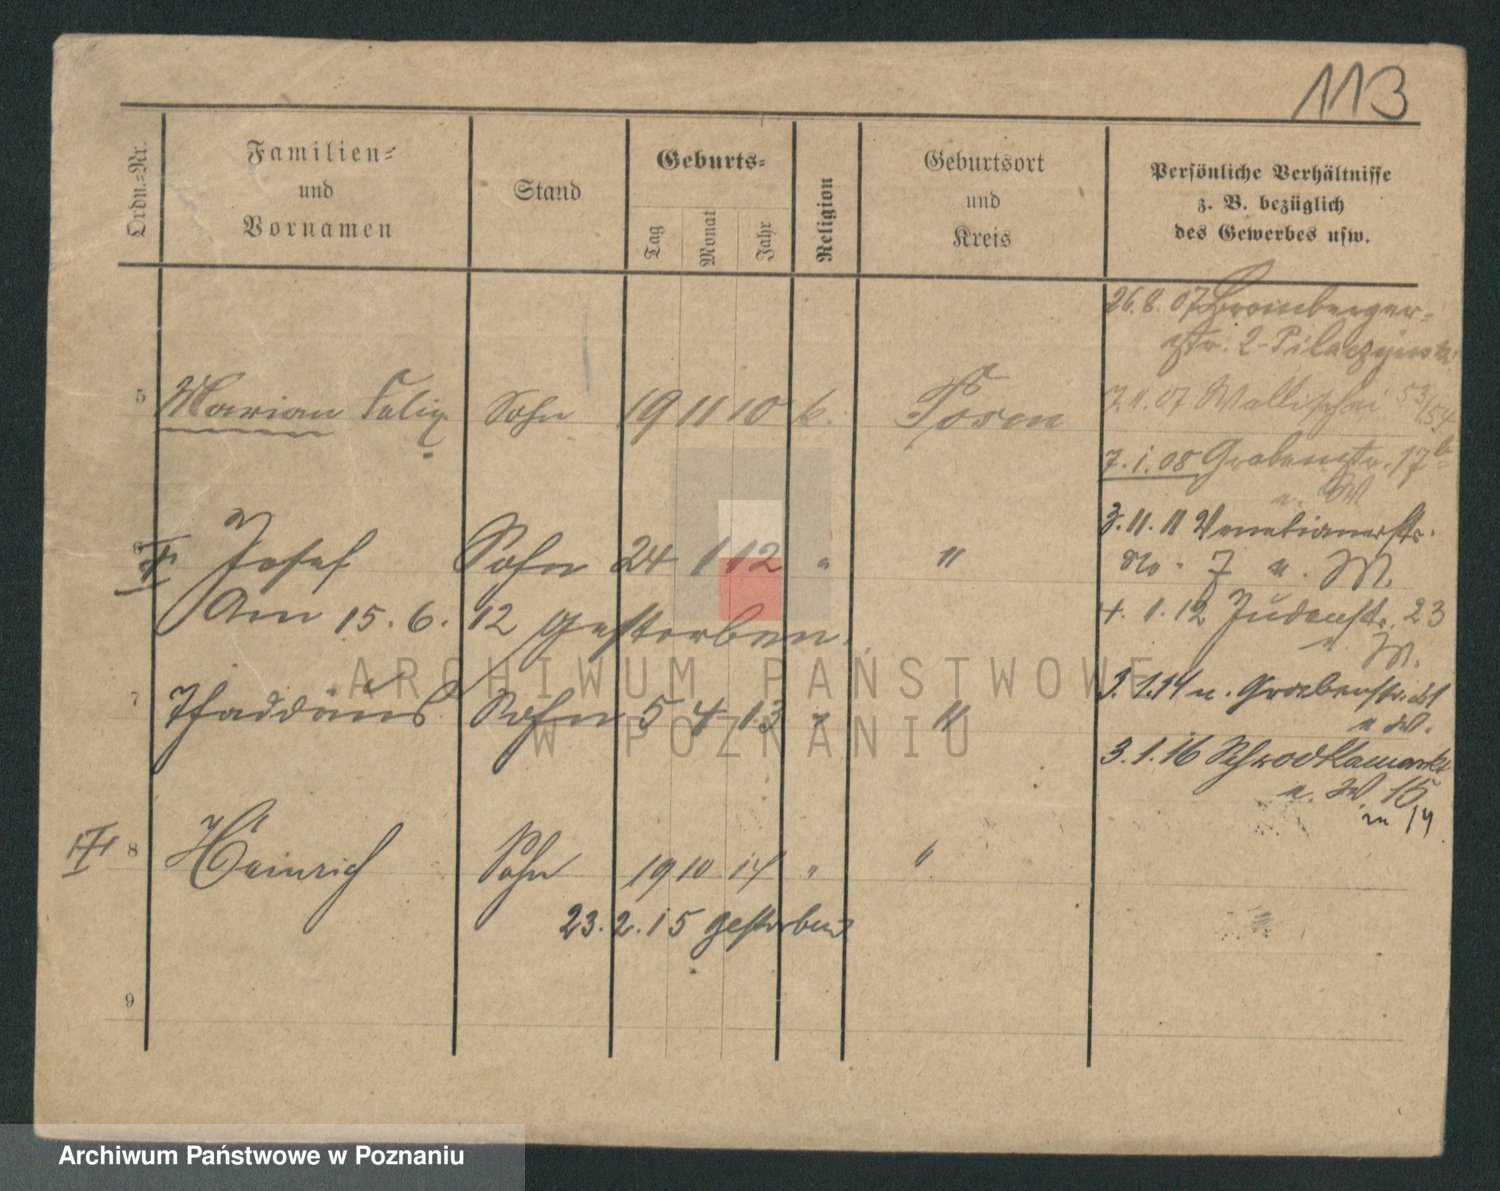 113
Ordn.-Nr.
Familien-
und
Vornamen
Stand
Geburts-
Tag
Monat
Jahr
Religion
Geburtsort
und
Kreis
Persönliche Verhältnisse
z. B. bezüglich
des Gewerbes usw.
26.8.07 Bromberger-
str. 2-Pilaczynski
5 Marian Felix Sohn 19 11 10 k. Posen
7.11.07 Wallischei 53/54
7.1.08 Grabenstr. 17
u. W
3.11.11 Venetianerstr.
No. 7 u. W.
6 Josef Sohn 24 1 12 " "
Am 15.6.12 gestorben.
4.1.12 Judenstr. 23
u W.
7 Thaddäus Sohn 5 4 13 " "
3.1.14 n. Grabenstr. 21
u W.
3.1.16 Schrodkamarkt
u. W 15
8 Heinrich Sohn 19 10 14 " "
23.2.15 gestorben
9
ARCHIWUM PAŃSTWOWE
W POZNANIU
Archiwum Państwowe w Poznaniu